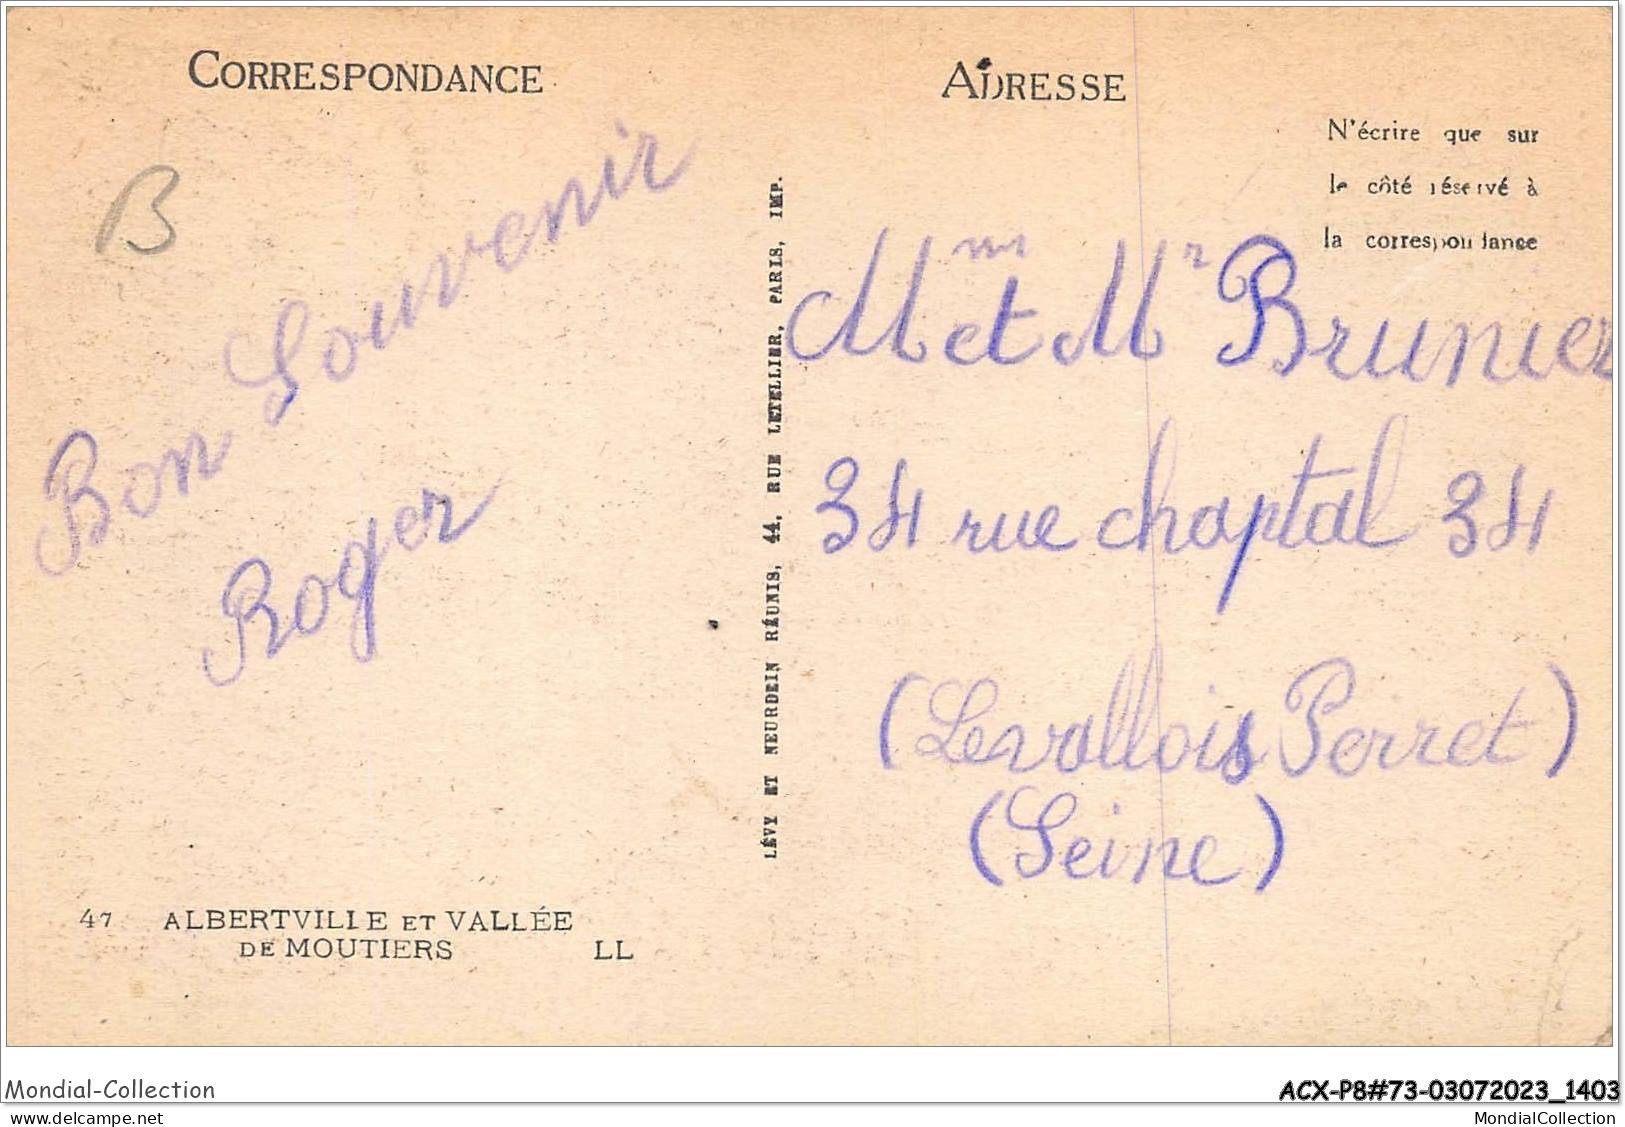 CORRESPONDANCE
ADRESSE
N'écrire que sur
le côté réservé à
la correspondance
B
Bon Souvenir
Roger
LÉVY ET NEURDEIN RÉUNIS, 44, RUE LETELLIER, PARIS, IMP.
Mme et Mr Brunier
34 rue chaptal 34
(Levallois Perret)
(Seine)
47 ALBERTVILLE ET VALLÉE
DE MOUTIERS LL
Mondial-Collection
ACX-P8#73-03072023_1403
www.delcampe.net
MondialCollection